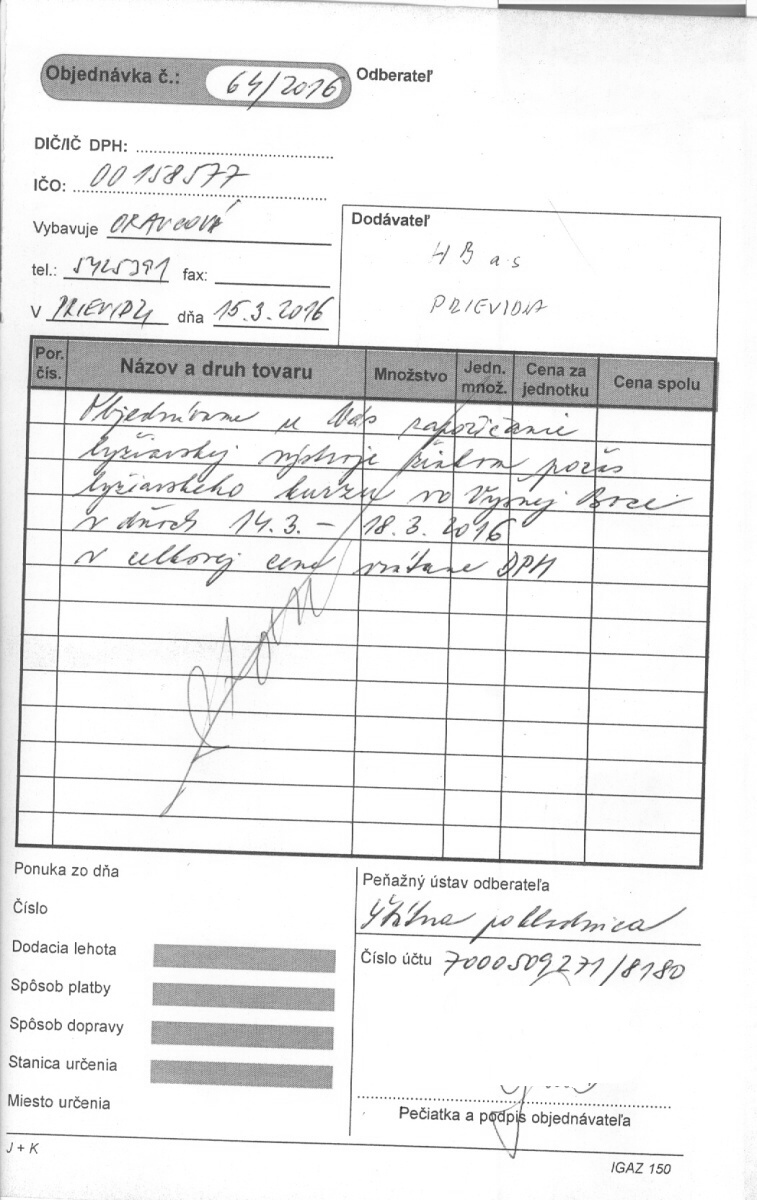 Objednávka č.: 64/2016 Odberateľ
DIČ/IČ DPH:
IČO: 00158577
Vybavuje ORAVCOVÁ
tel.: 5425391 fax:
V PRIEVIDZI dňa 15.3.2016
Dodávateľ
HB a s
PRIEVIDZA
Por. čís. Názov a druh tovaru Množstvo Jedn. množ. Cena za jednotku Cena spolu
Objednávame u Vás zapožičanie
lyžiarskej výstroje žiakom počas
lyžiarskeho kurzu vo Vyšnej Boci
v dňoch 14.3. – 18.3. 2016
v celkovej cene vrátane DPH
Ponuka zo dňa
Číslo
Dodacia lehota
Spôsob platby
Spôsob dopravy
Stanica určenia
Miesto určenia
Peňažný ústav odberateľa
Štátna pokladnica
Číslo účtu 7000509271/8180
Pečiatka a podpis objednávateľa
J + K
IGAZ 150